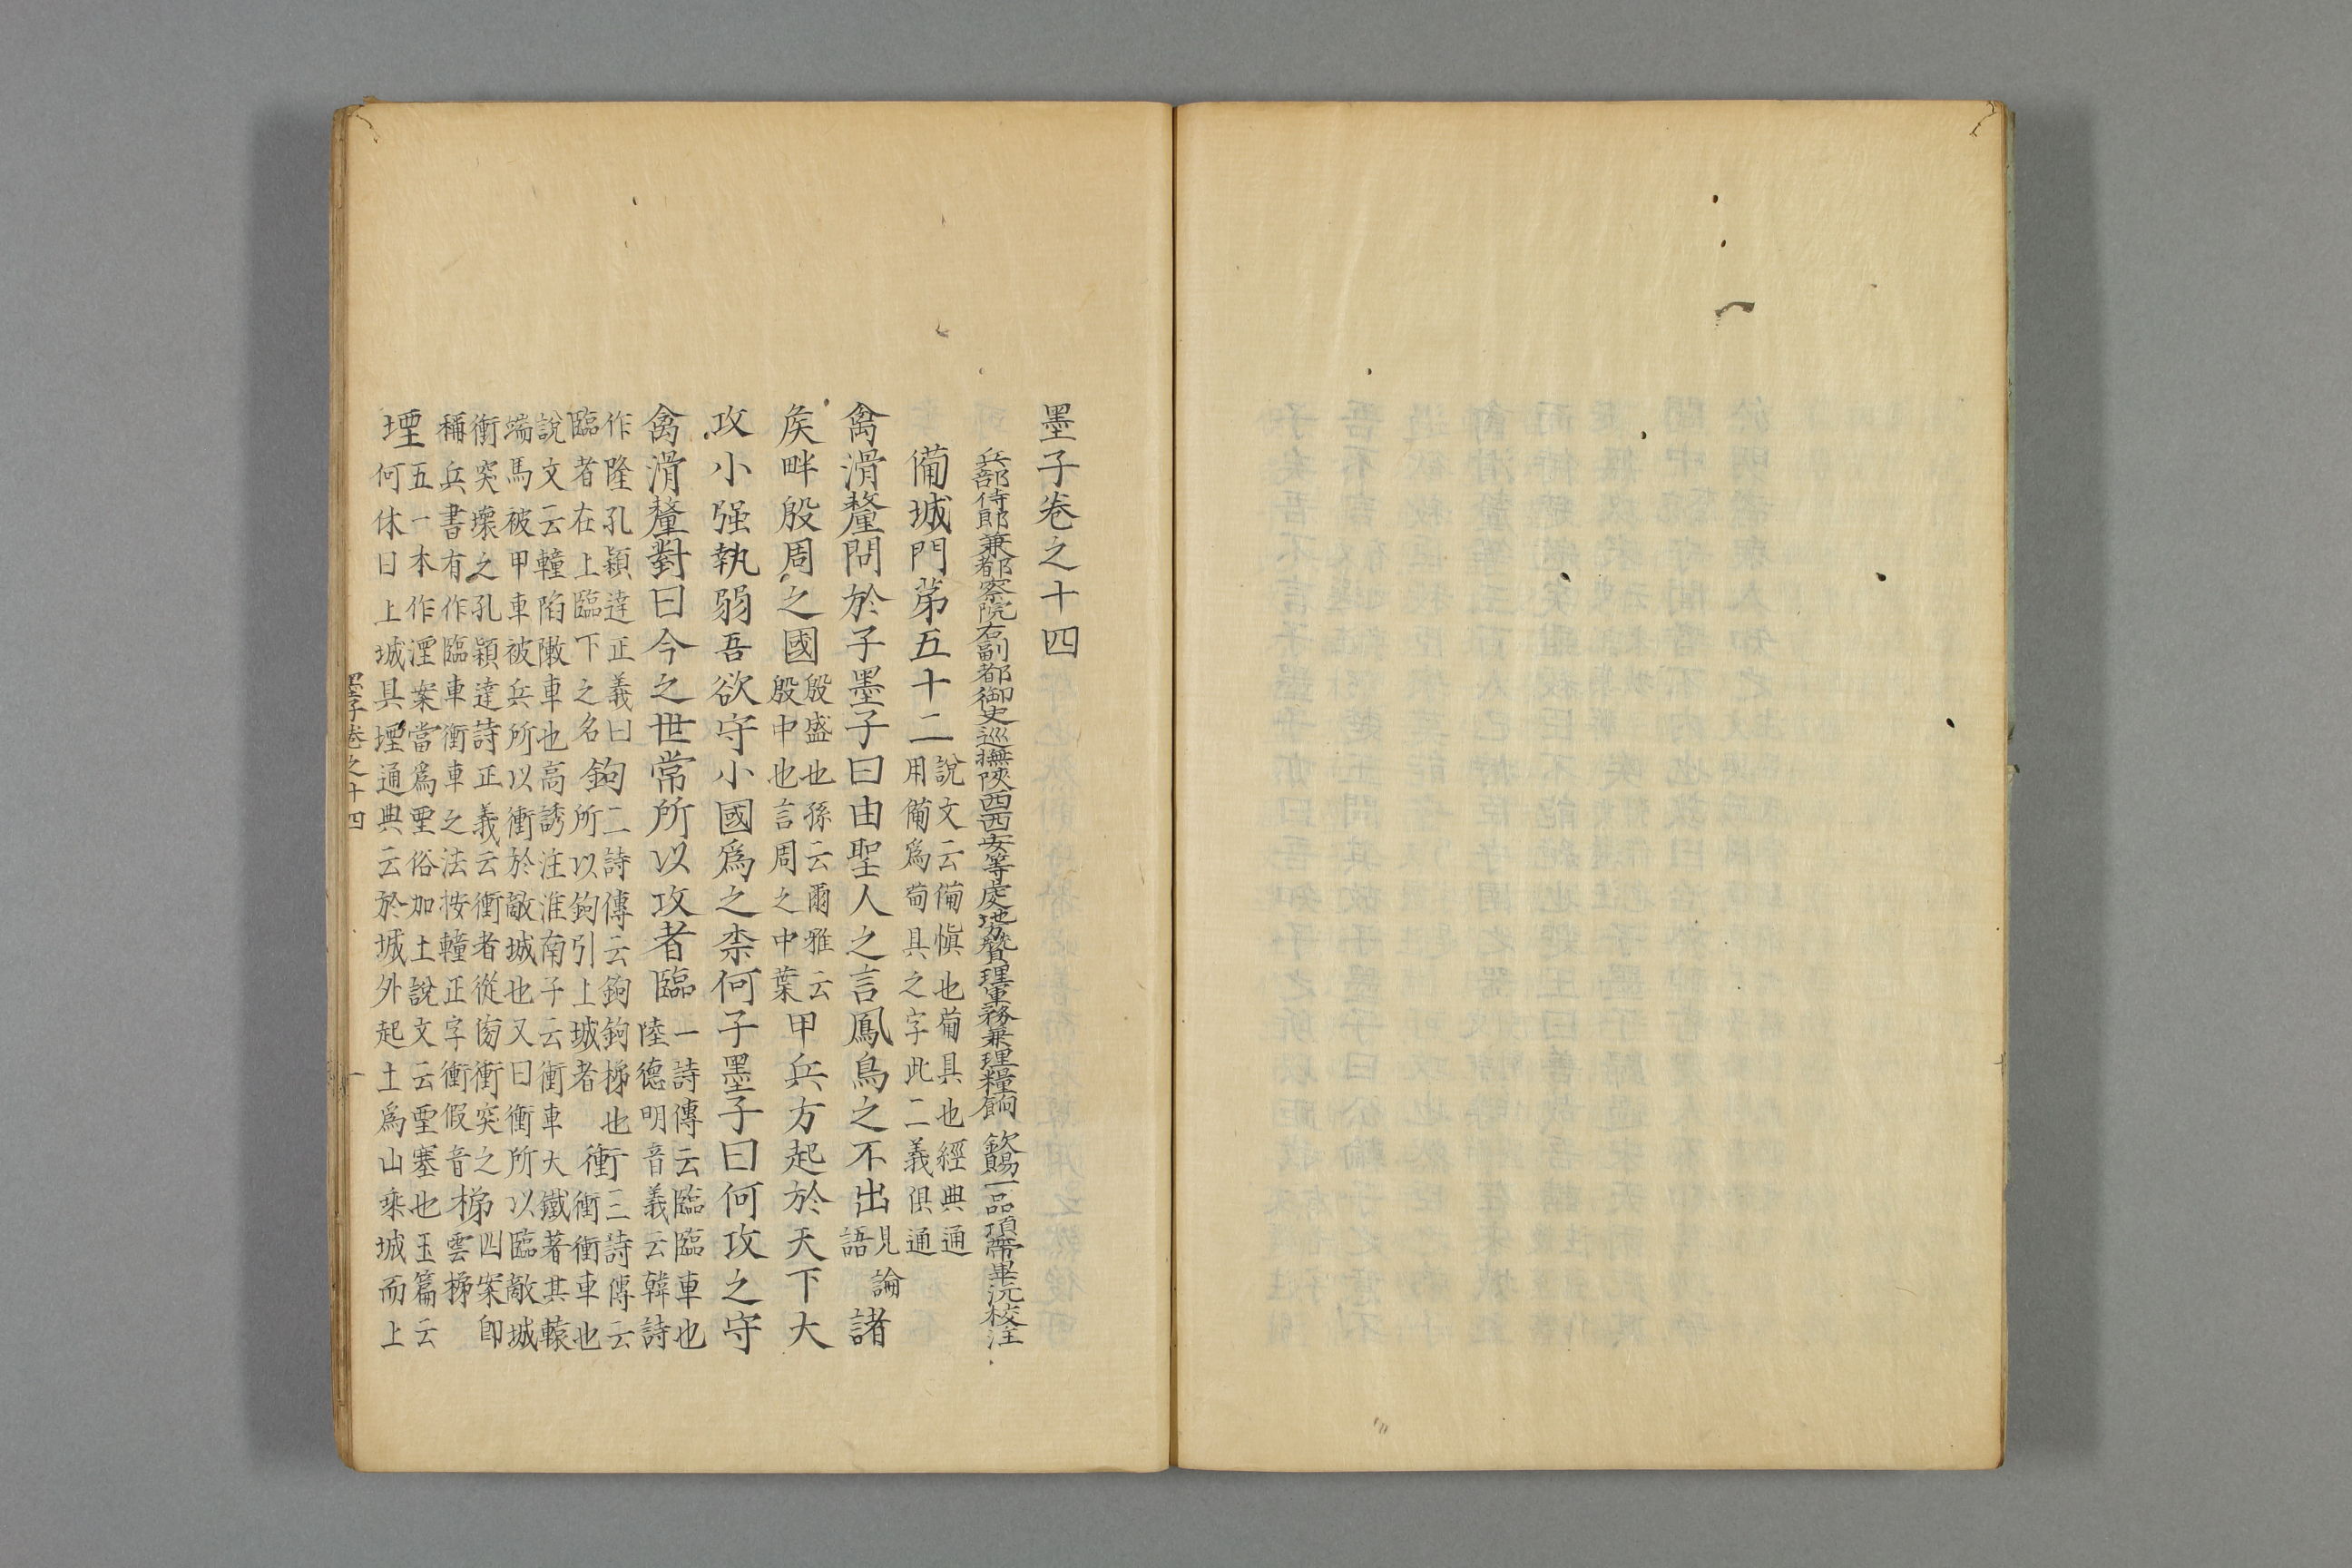 墨子卷之十四
兵部侍郎兼都察院右副都御史巡撫陝西西安等處地方贊理軍務兼理糧餉 欽賜一品頂帶畢沅校注
備城門苐五十二
說文云備愼也葡具也經典通
用備爲葡具之字此二義俱通
禽滑釐問於子墨子曰由聖人之言鳳鳥之不出
見論
語
諸
矦畔殷周之國
殷盛也孫云爾雅云
殷中也言周之中葉
甲兵方起於天下大
攻小强執弱吾欲守小國爲之柰何子墨子曰何攻之守
禽滑釐對曰今之世常所以攻者臨
一詩傳云臨臨車也
陸德明音義云韓詩
作隆孔穎達正義曰
臨者在上臨下之名
鉤
二詩傳云鉤鉤梯也
所以鉤引上城者
衝
三詩傳云
衝衝車也
說文云轒陷敶車也高誘注淮南子云衝車大鐵著其轅
端馬被甲車被兵所以衝於敵城也又曰衝所以臨敵城
衝突壞之孔穎達詩正義云衝者從傍衝突之
稱兵書有作臨車衝車之法按轒正字衝假音
梯
四案卽
雲梯
堙
五一本作湮案當爲垔俗加土說文云垔塞也玉篇云
何休曰上城具堙通典云於城外起土爲山乘城而上
墨子卷之十四
一